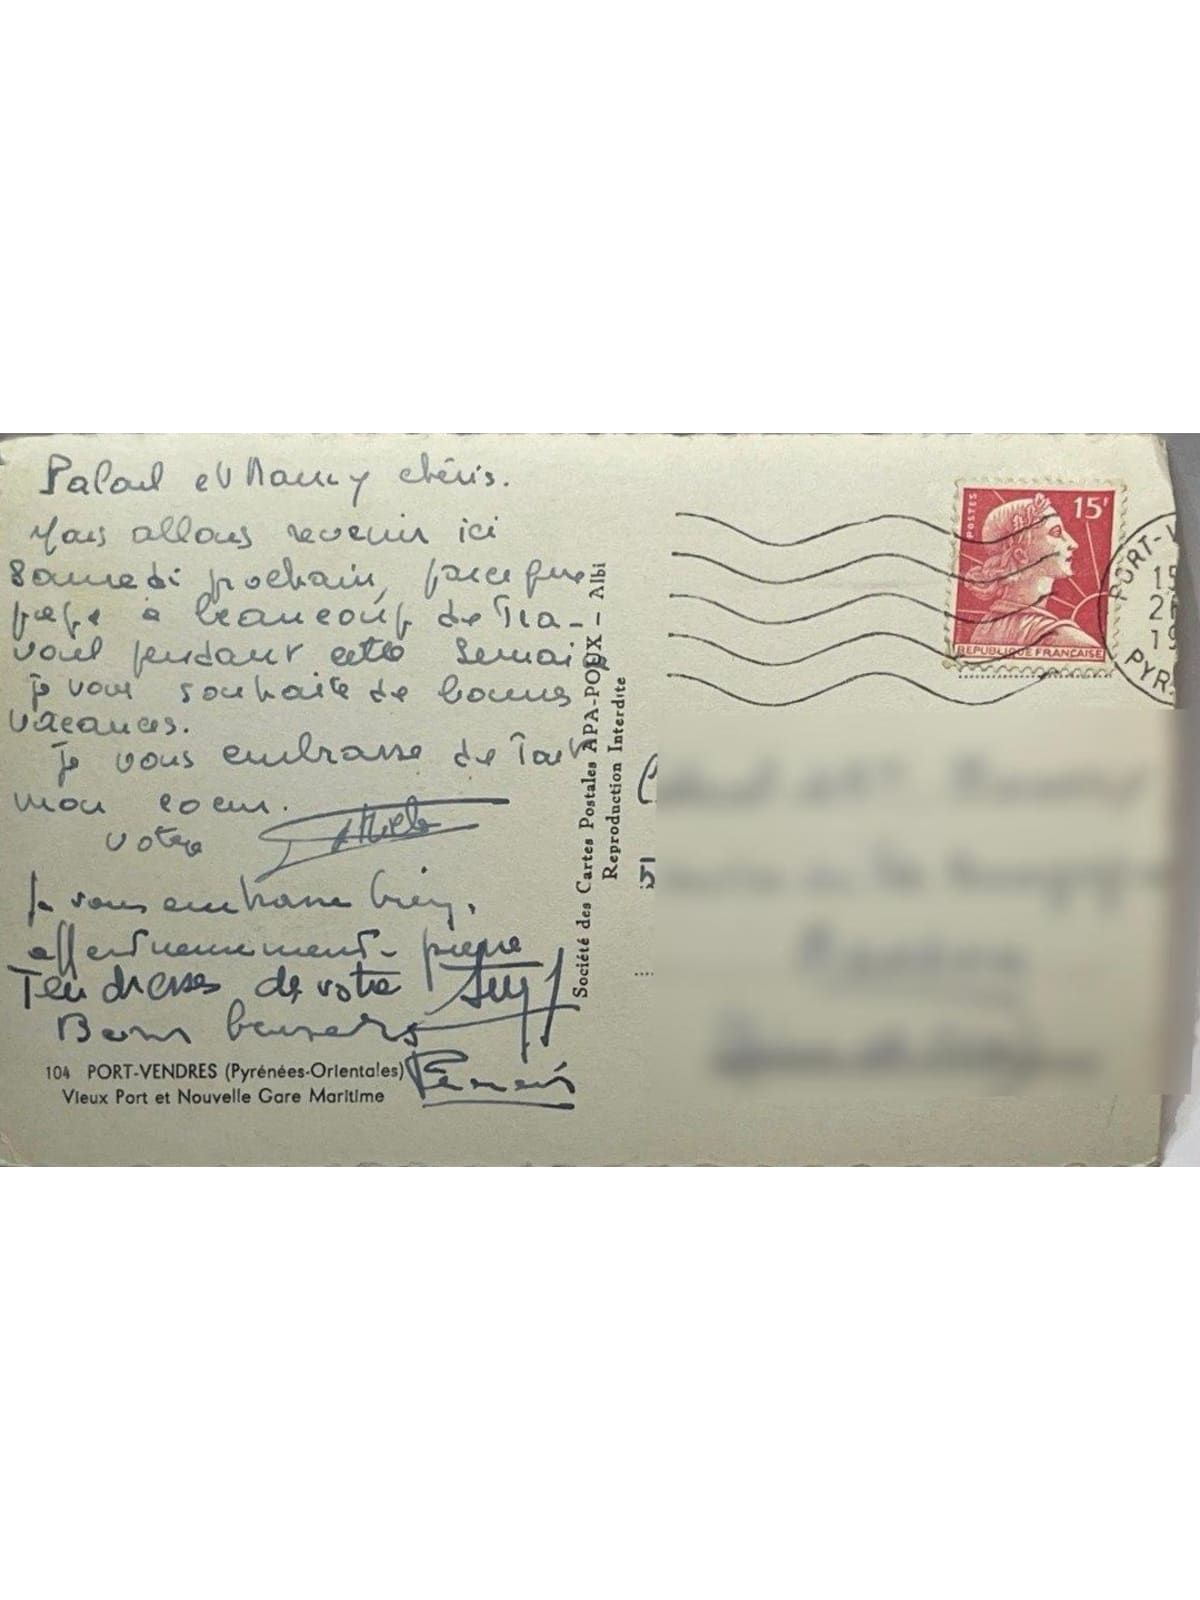 et Nancy chéris.
Nous allons revenir ici
Samedi prochain, parceque
papa a beaucoup de Tra-
vail pendant cette Semaine
je vous souhaite de bonnes
vacances.
je vous embrasse de Tout
mon coeur.
votre
Je vous embrasse bien,
affectueusement - pierre
Tendresses de votre
Bons baisers
104 PORT-VENDRES (Pyrénées-Orientales)
Vieux Port et Nouvelle Gare Maritime
Société des Cartes Postales APA-POUX - Albi
Reproduction Interdite
POSTES
15F
REPUBLIQUE FRANÇAISE
PORT-V
15
2
19
PYR.